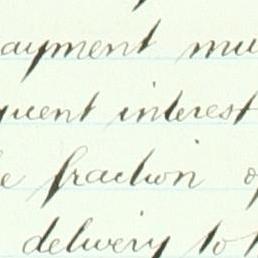 ayment mu
quent interest
e fraction o
delivery to t